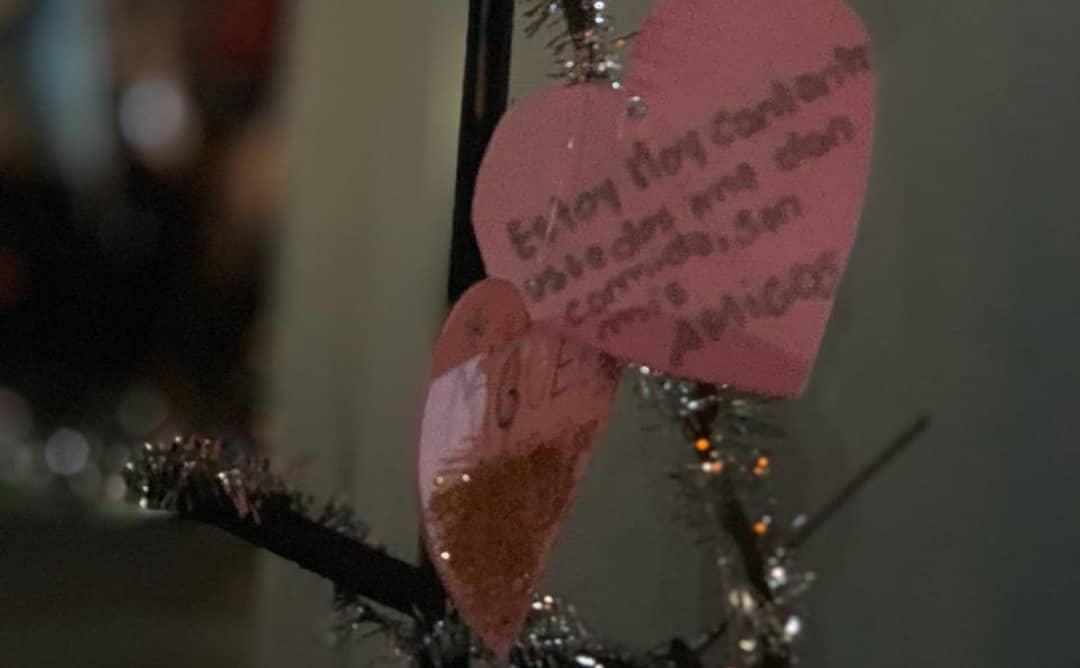 Estoy Moy Contente
ustedes me dan
comida, son
mis
AMiGOS